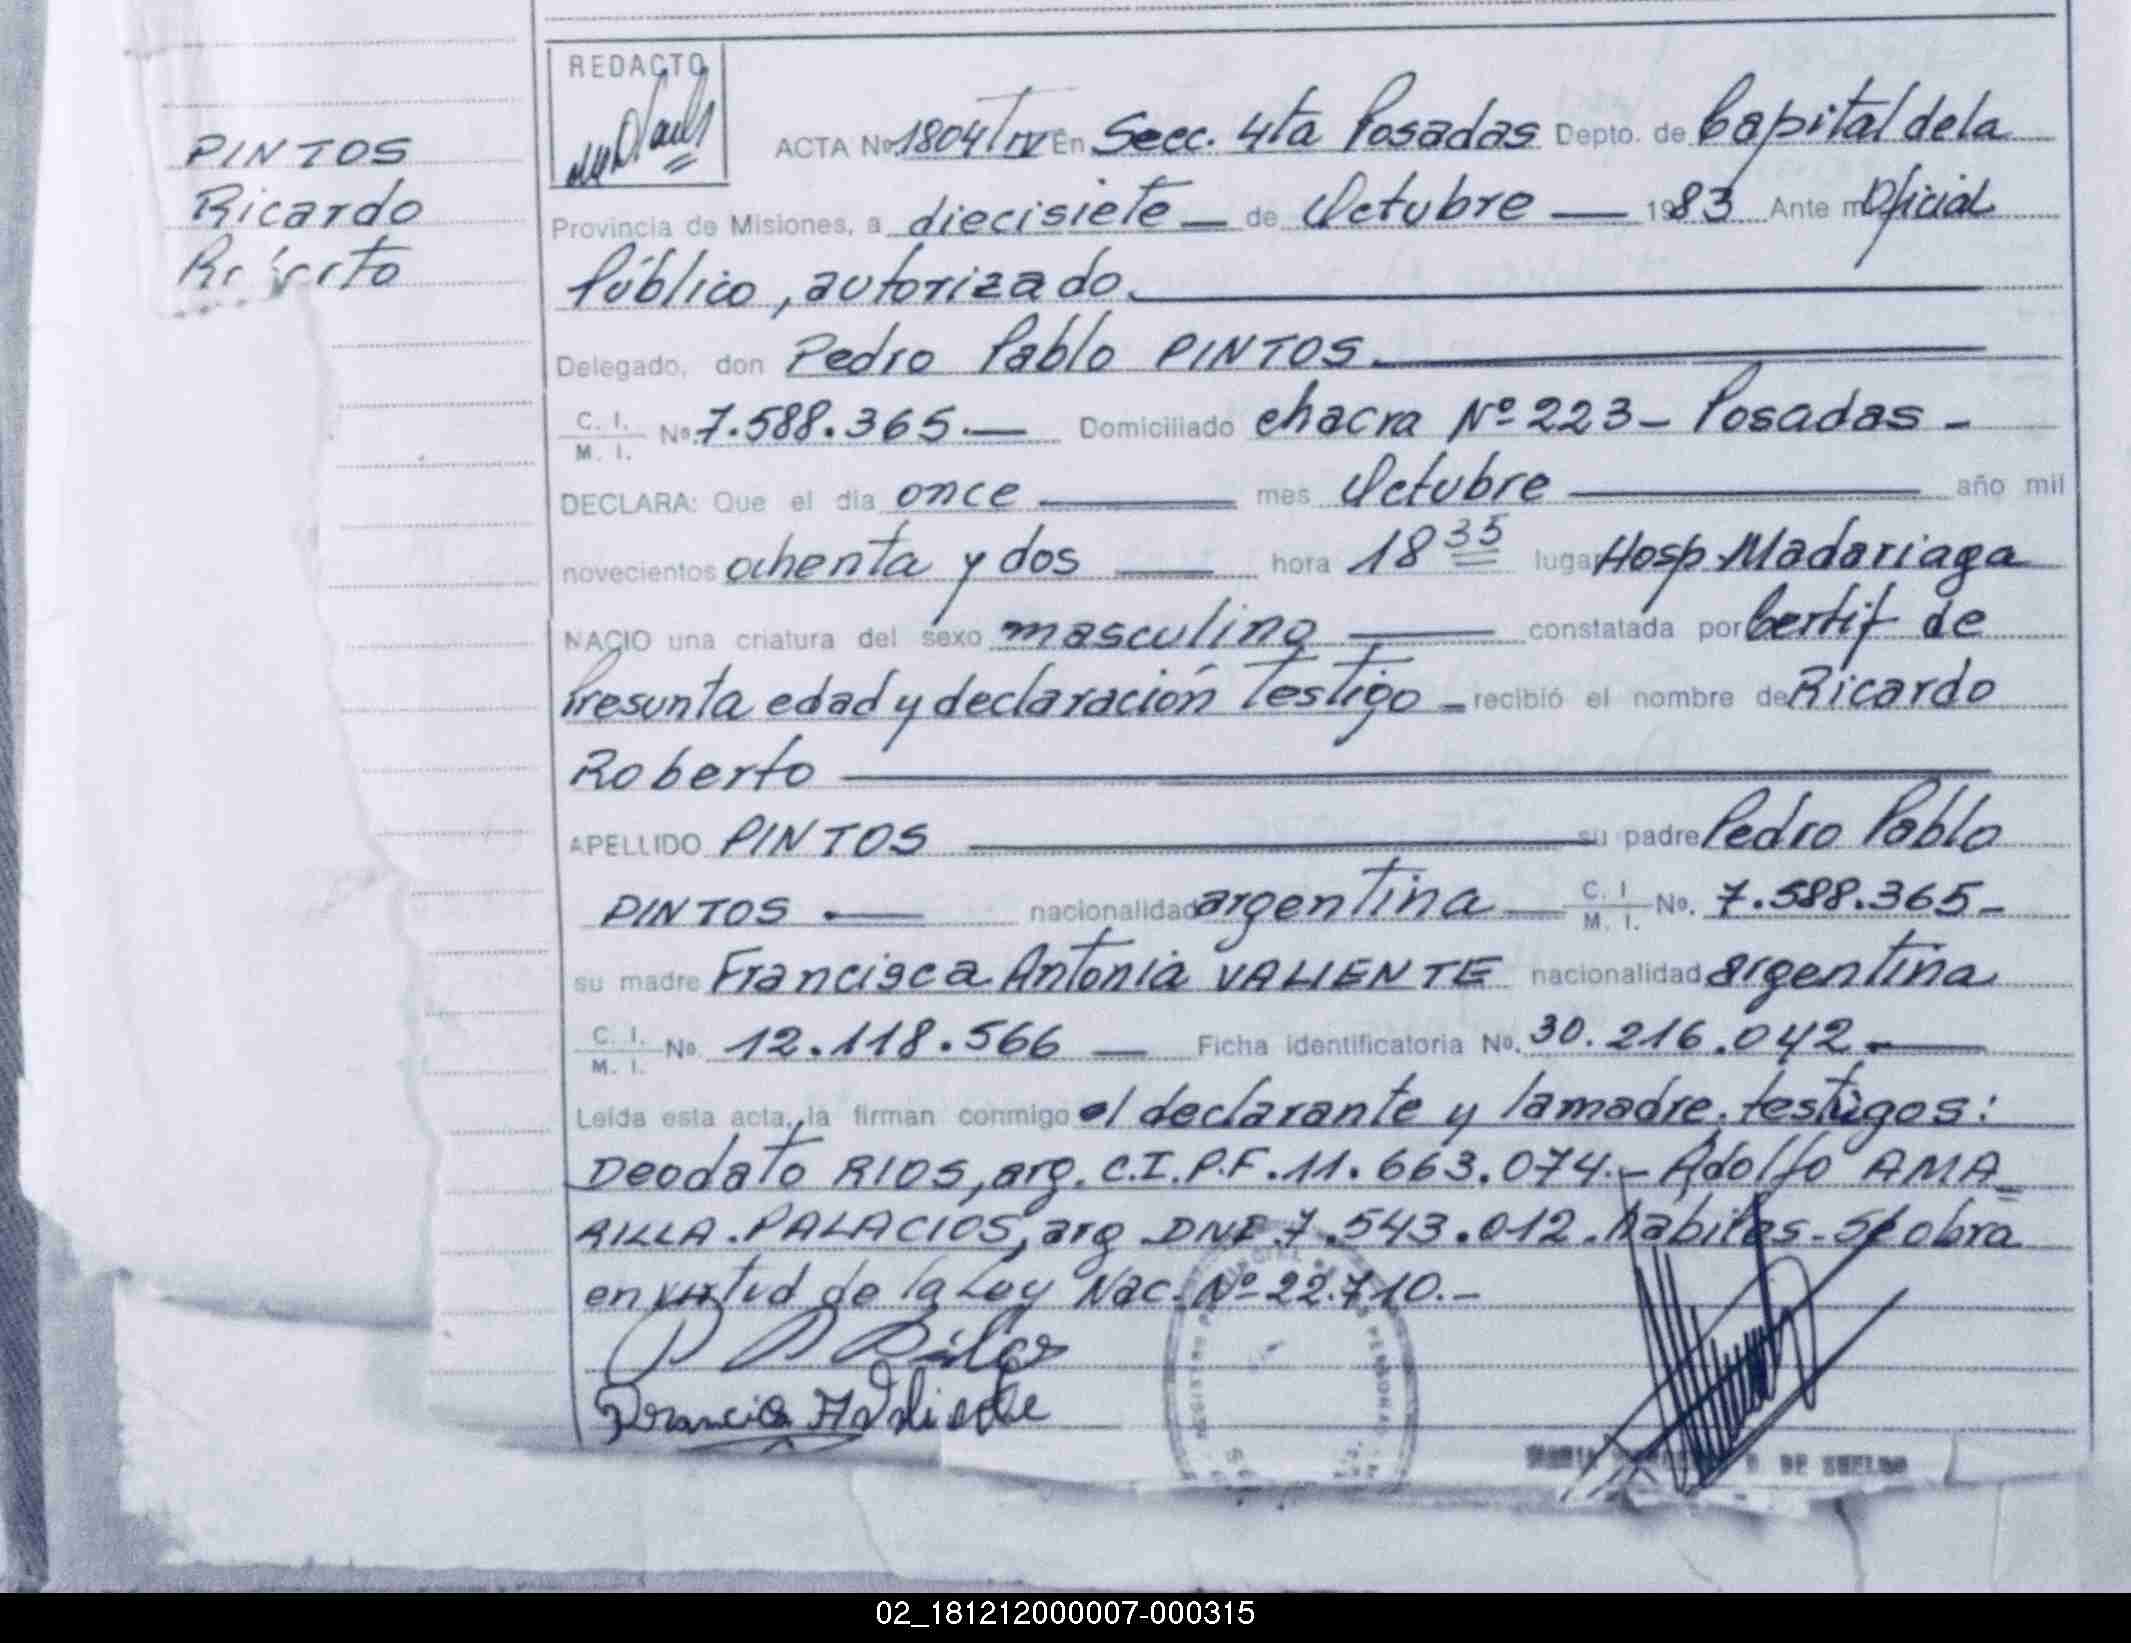 PINTOS
Ricardo
Roberto
REDACTO
ACTA No 1804/IV En Secc. 4ta Posadas Depto. de Capital de la
Provincia de Misiones, a diecisiete — de Octubre — 1983 Ante mi Oficial
Público, autorizado.
Delegado, don Pedro Pablo PINTOS.
C. I. M. I. No. 7.588.365.— Domiciliado chacra Nº 223 - Posadas -
DECLARA: Que el dia once — mes Octubre — año mil
novecientos ochenta y dos — hora 18 35 lugar Hosp Madariaga
NACIO una criatura del sexo masculino — constatada por Certif de
Presunta edad y declaración testigo - recibió el nombre de Ricardo
Roberto —
APELLIDO PINTOS — su padre Pedro Pablo
PINTOS . — nacionalidad argentina — C. I. M. I. No. 7.588.365 -
su madre Francisca Antonia VALIENTE nacionalidad argentina
C. I. M. I. No. 12.118.566 — Ficha identificatoria No. 30.216.042. —
Leída esta acta, la firman conmigo el declarante y la madre. testigos:
Deodato RIOS, arg. C.I.P.F. 11.663.074.- Adolfo AMA
RILLA. PALACIOS, arg DNI 7.543.012. habiles - Se obra
en virtud de la Ley Nac. Nº 22.710.-
DE
02_181212000007-000315